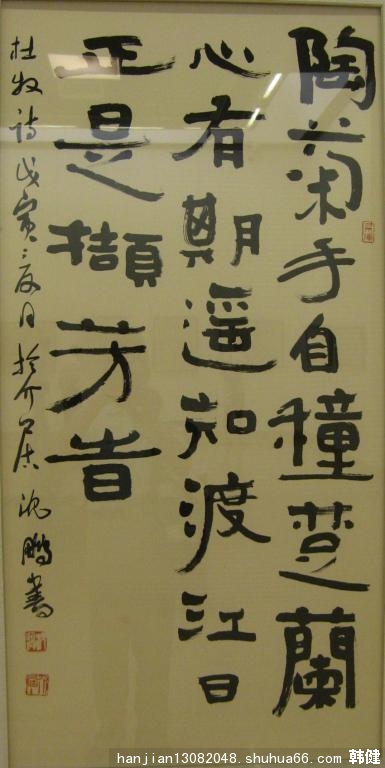 陶菊手自穜楚蘭
心有期遥知渡江日
正是擷芳旹
杜牧诗戊寅夏日於介居沈鹏書
hanjian13082048.shuhua66.com 韩健